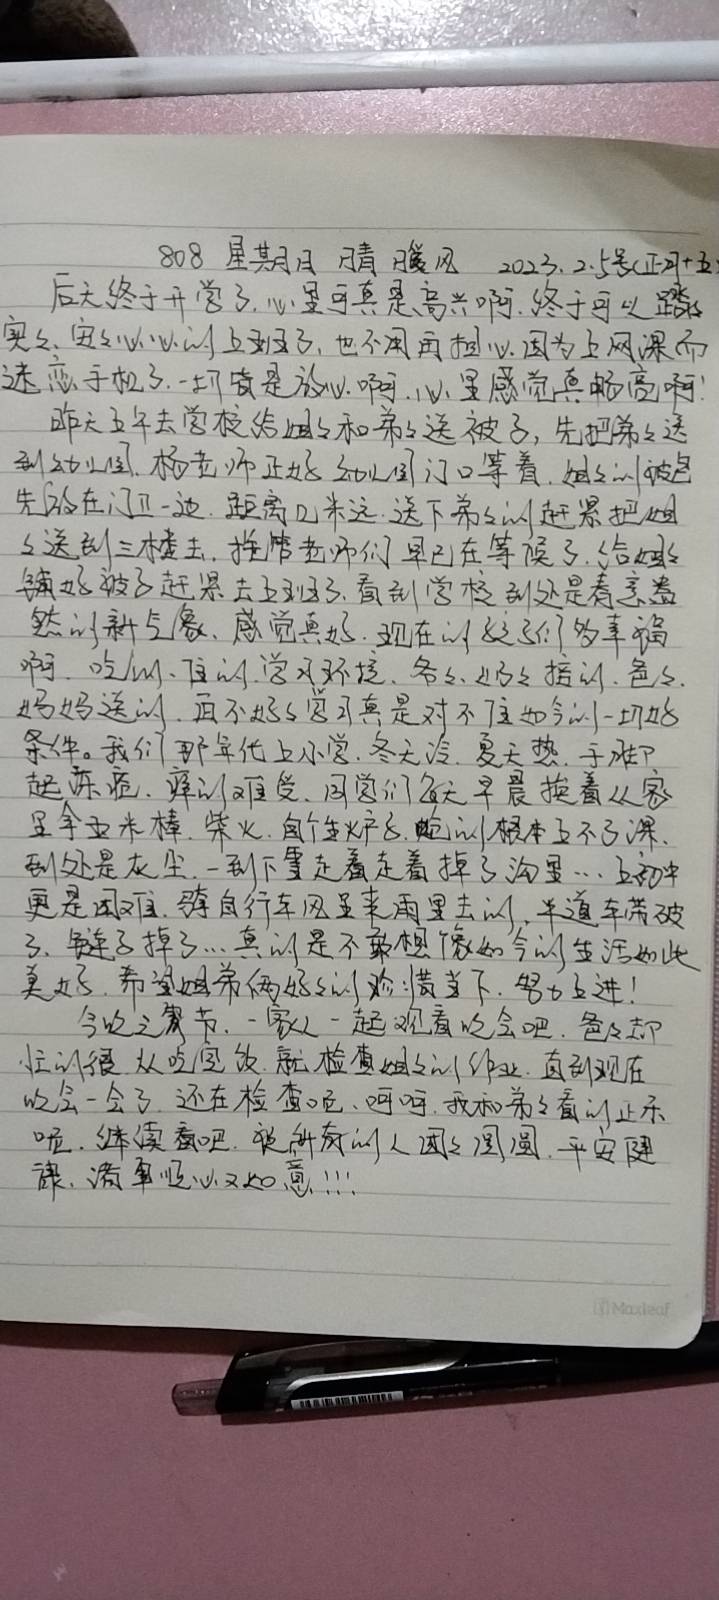 808 星期日 晴 暖风 2023.2.5号(正月十五)
后天终于开学了.心里可真是高兴啊.终于可以踏踏
实实、安安心心的上班了,也不用再担心.因为上网课而
迷恋手机了.一切皆是放心.啊.心里感觉真畅亮啊!
昨天五午去学校给姐姐和弟弟送被子,先把弟弟送
到幼儿园.杨老师正好幼儿园门口等着.姐姐的被包
先放在门卫一边.距离几米远.送下弟弟的赶紧把姐
姐送到三楼去.老师们早已在等候了.给姐姐
铺好被子赶紧去上班了.看到学校到处是春意盎
然的新气象.感觉真好.现在的孩子们多幸福
啊.吃的、住的.学习环境、爷爷、奶奶接的.爸爸.
妈妈送的.再不好好学习真是对不住如今的一切好
条件。我们那年代上小学.冬天冷.夏天热.手脚
起冻疮.痒的难受.同学们每天早晨挨着从家
里拿玉米棒.柴火.自个生炉子.呛的根本上不了课.
到处是灰尘.一到下雪走着走着掉了沟里…上初中
更是困难.骑自行车风里来雨里去的.半道车带破
了.链子掉了…真的是不敢想像如今的生活如此
美好.希望姐弟俩好好的珍惜当下.努力上进!
今晚元宵节.一家人一起观看晚会吧.爸爸却
忙的很.从吃完饭.就检查姐姐的作业.直到现在
晚会一会了.还在检查呢.呵呵.我和弟弟看的正乐
呢.继续看吧.祝所有的人团团圆圆.平安健
康.诸事顺心又如意!!!
Maxleaf